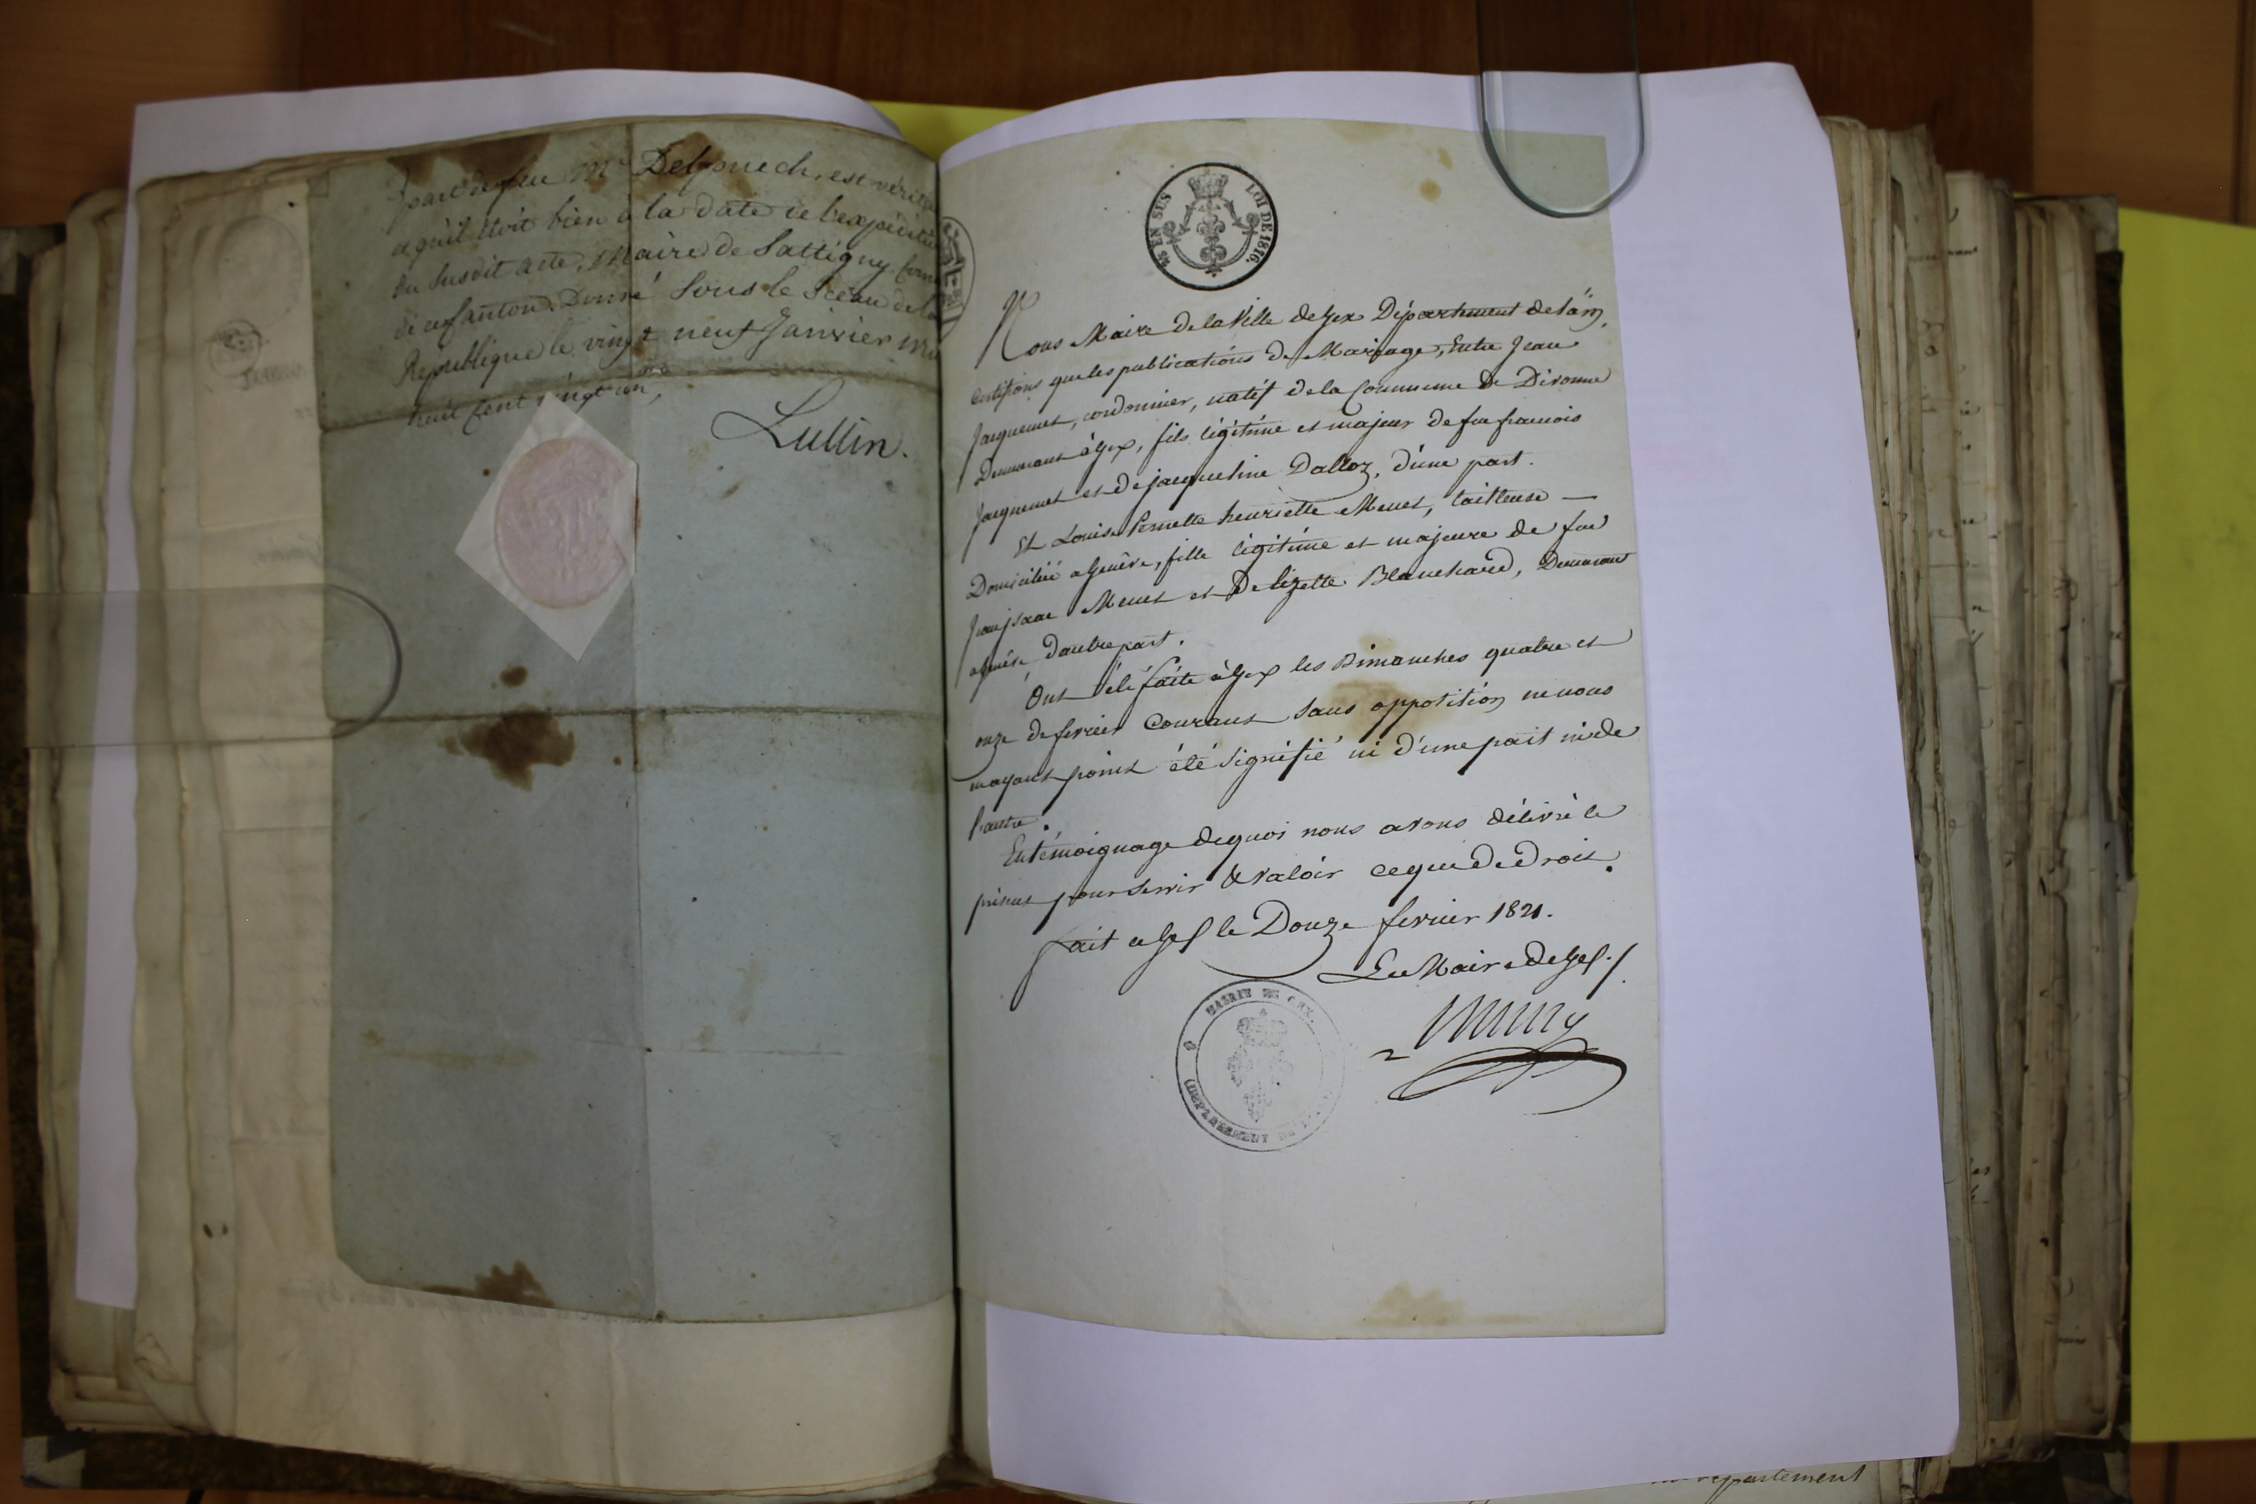 par feu Mr Delpouech, est vérita
qu'il étoit bien à la date de l'expéditi
du susdit acte, Maire de Sattigny
de ce Canton. Donné sous le sceau de la
Republique le vingt neuf Janvier mil
huit cent vingt un,
Lullin.
EN SUS
LOI DE 1816.
Nous Maire de la Ville de Gex Département de l'ain,
certifions que les publications de Mariage, Entre Jean
Jacquemet, cordonnier, natif de la Commune de Divonne
Demeurant à Gex, fils légitime et majeur de feu francois
Jacquemet et de jacqueline Dalloz, d'une part.
Et Louise Pernette henriette Menet, tailleuse —
Domiciliée a Genève, fille légitime et majeure de feu
Jean jsaac Menet et De lizette Blanchard, Demeurant
a Genève, d'autre part.
Ont été faite à Gex les Dimanches quatre et
onze de fevrier Courant sans oppotition ne nous
nayant point été signifié ni d'une part ni de
l'autre.
En témoignage de quoi nous avons délivré le
présent pour servir & valoir ce que de droit.
fait a Gex le Douze fevrier 1821.
Le Maire de Gex./.
MAIRIE DE GEX.
DEPARTEMENT DE L'AIN
département